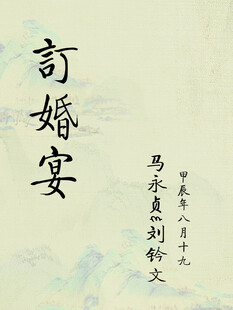 訂婚宴
马永贞 刘钤文
甲辰年八月十九